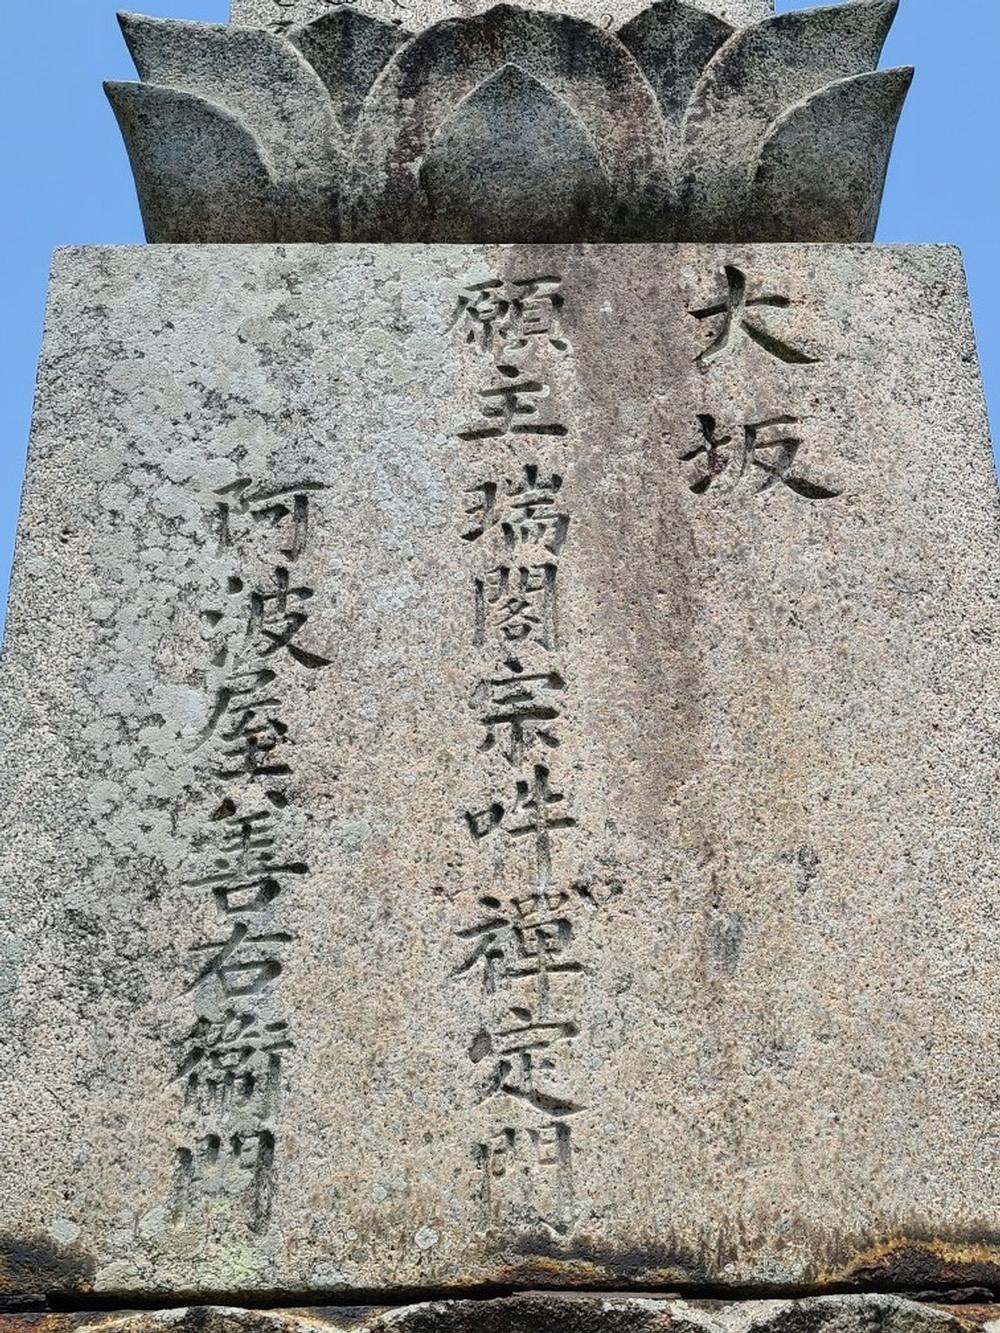 大坂
願主瑞閣宗吽禪定門
阿波屋善右衛門